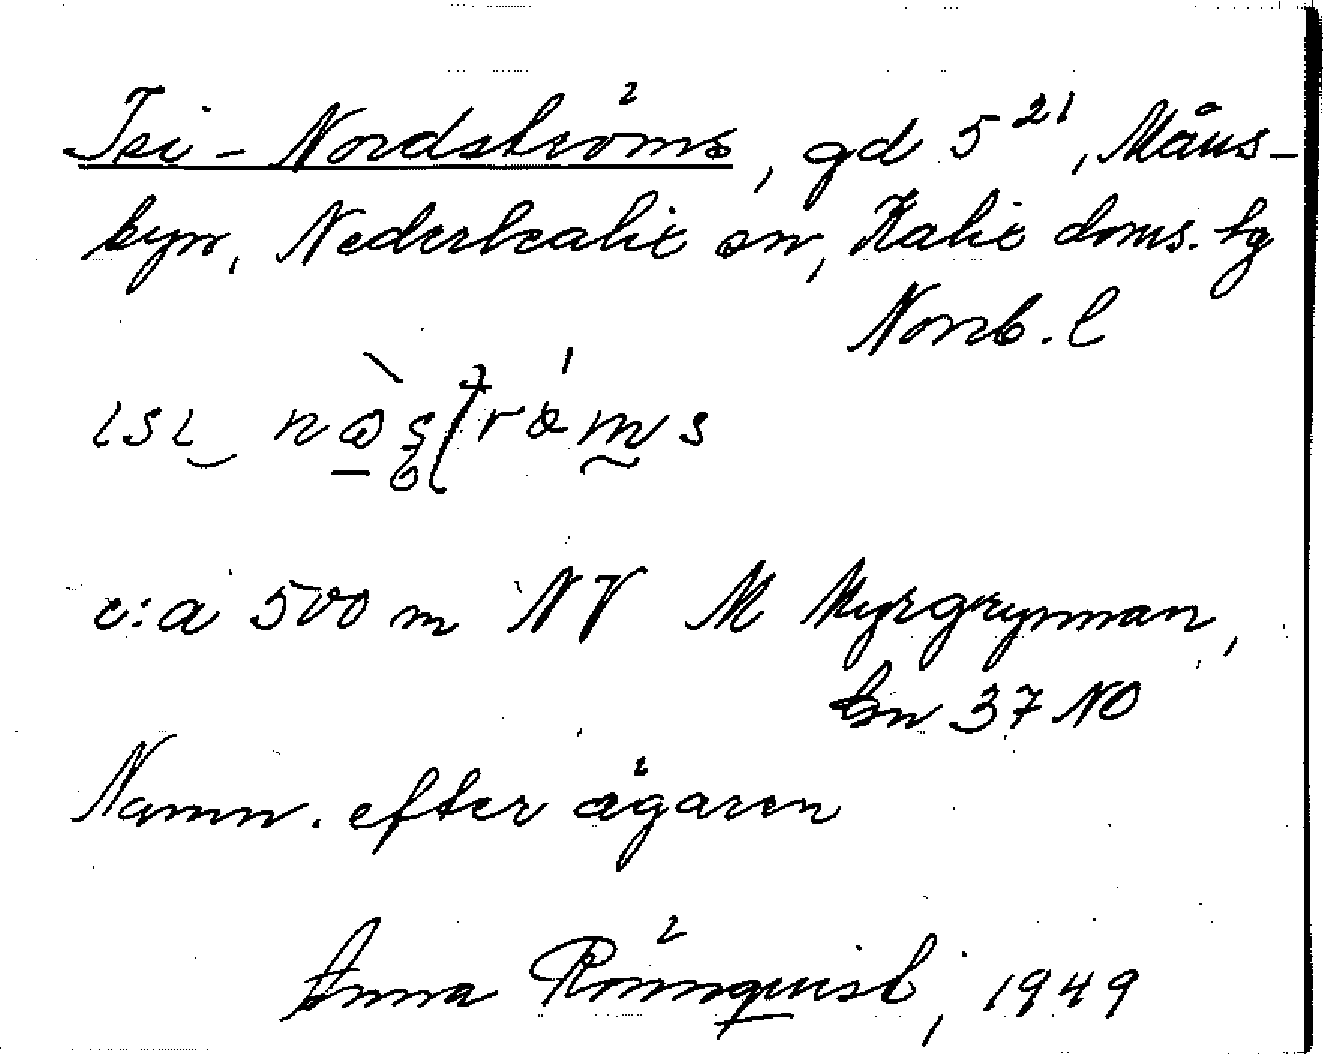 Isi-Nordströms, gd 5²¹, Måns-
byn, Nederkalix sn, Kalix doms. tg
Norrb. l
c:a 500 m NV M Myrgrynnan,
bn 37 NO
Namn. efter ägaren
Anna Rönnquist, 1949